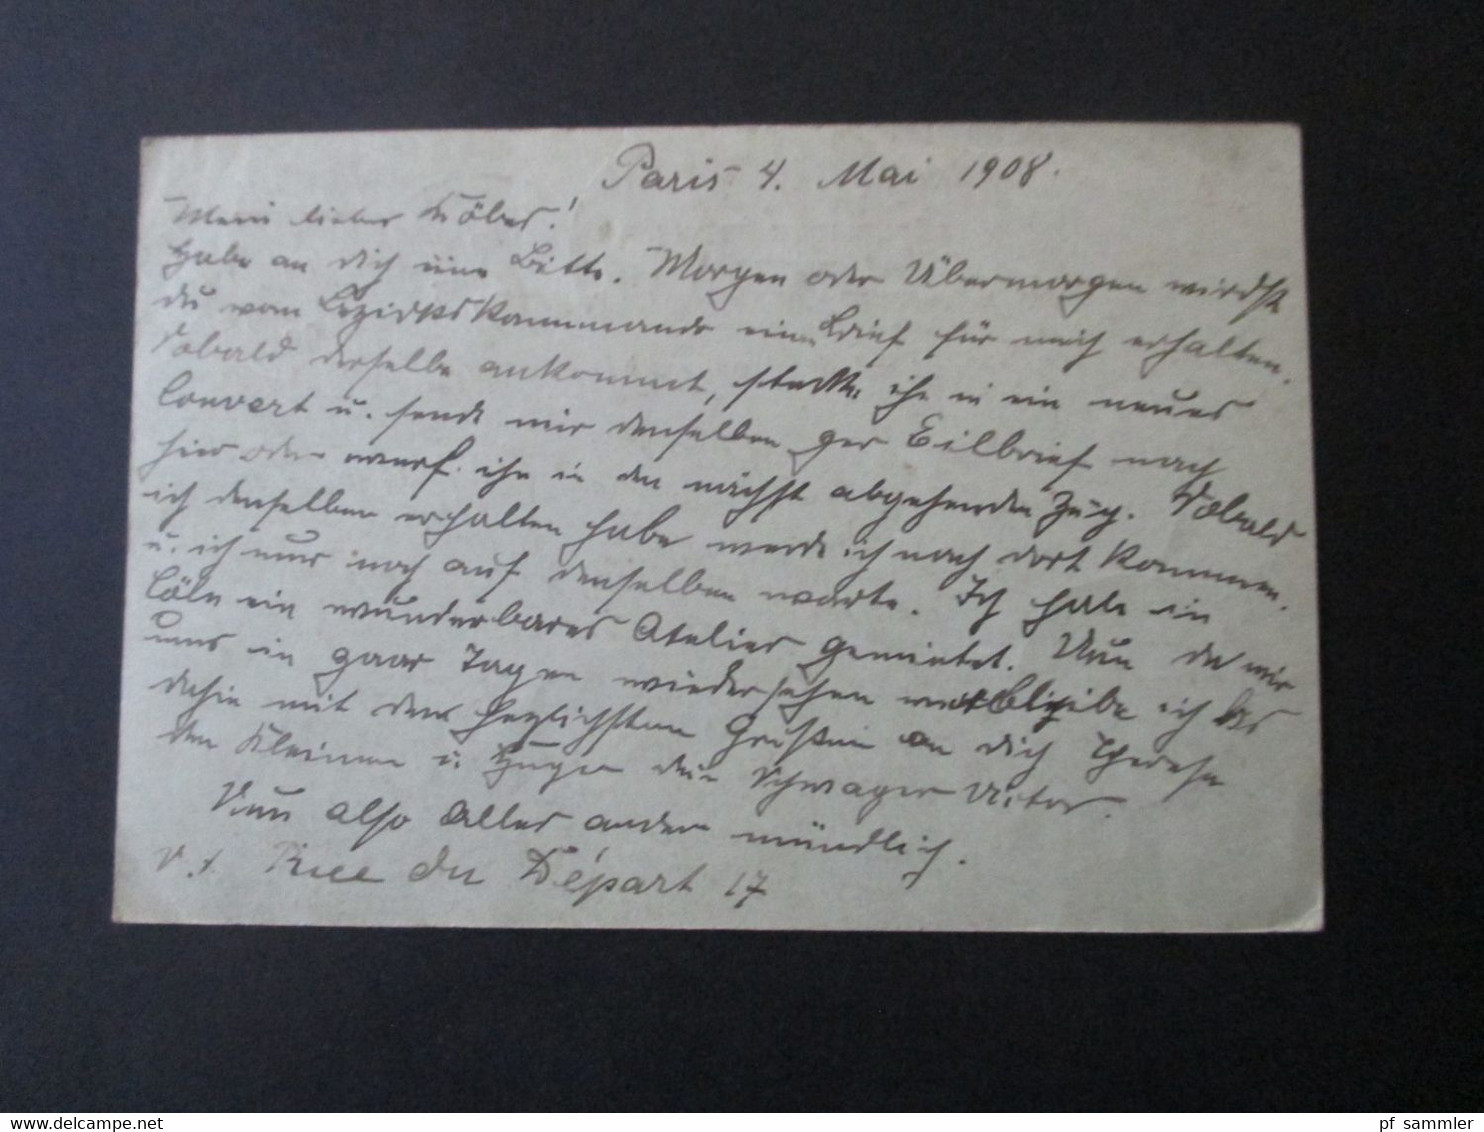 Paris 4. Mai 1908.
Mein lieber Köbes!
Habe an dich eine Bitte. Morgen oder Übermorgen wirdst
du vom Bezirkskommando ein Brief für mich erhalten.
Sobald derselbe ankommt, stecke ihn in ein neues
Couvert u. sende mir denselben per Eilbrief nach
hier oder werf ihn in den nächst abgehenden Zug. Sobald
ich denselben erhalten habe werde ich nach dort kommen.
u. ich nur noch auf denselben warte. Ich habe in
Cöln ein wunderbares Atelier gemietet. Nun da wir
uns in paar Tagen wiedersehen bleibe ich bis
dahin mit den herzlichsten Grüßen an dich Therese
den Kleinen u. dein Schwager Victor.
Nun also Alles andere mündlich.
Rue du Départ 17
www.delcampe.net
pf_sammler